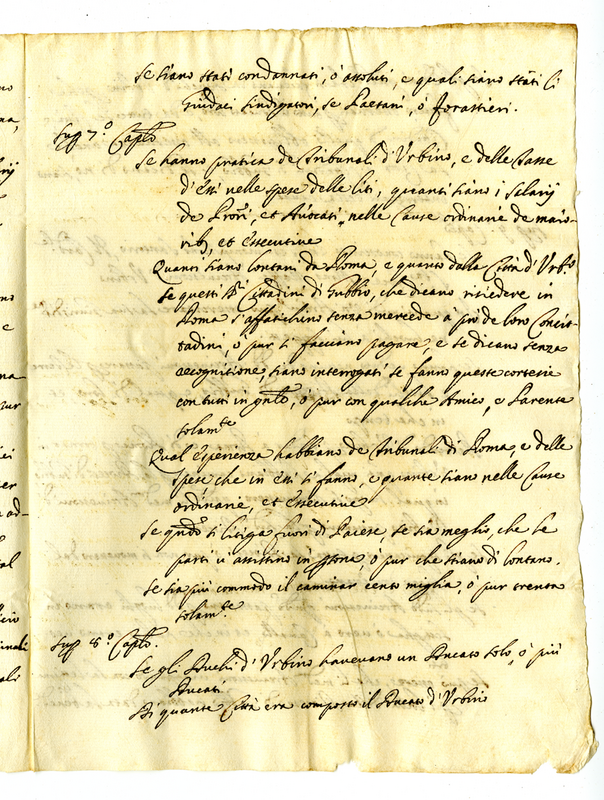 se siano stati condannati, ò assoluti, e quali siano stati li
Giudici sindigatori, se Paesani, ò forastieri.
Sup.ª 7.º Caplo.
Se hanno pratica de Tribunali d'Urbino, e delle Tasse
d'essi nelle spese delle liti, quanti siano i salarij
de Prori, et Avocati, nelle Cause ordinarie de maio-
ribz, et essecutive
Quanti siano lontani da Roma, e quanto dalla Città d'Urb.º
Se questi SSri Cittadini di Gubbio, che dicano risiedere in
Roma s'affatichino senza mercede à prò de loro Concit-
tadini, ò pur si facciano pagare, e se dicano senza
recognitione, siano interrogati se fanno queste cortesie
con tutti in gnle, ò pur con qualche Amico, e Parente
solamte
Qual esperienza habbiano de Tribunali di Roma, e delle
spese che in essi si fanno, e quante siano nelle Cause
ordinarie, et essecutive
Se qndo si litiga fuori di Paiese, se sia meglio, che le
parti vi assistino in psona, ò pur che stiano di lontano.
Se sia più commodo il caminar cento miglia, ò pur trenta
solamte
Sup.ª 8.º Caplo.
Se gli Duchi d'Urbino havevano un Ducato solo, ò più
Ducati.
Di quante Città era composto il Ducato d'Urbino